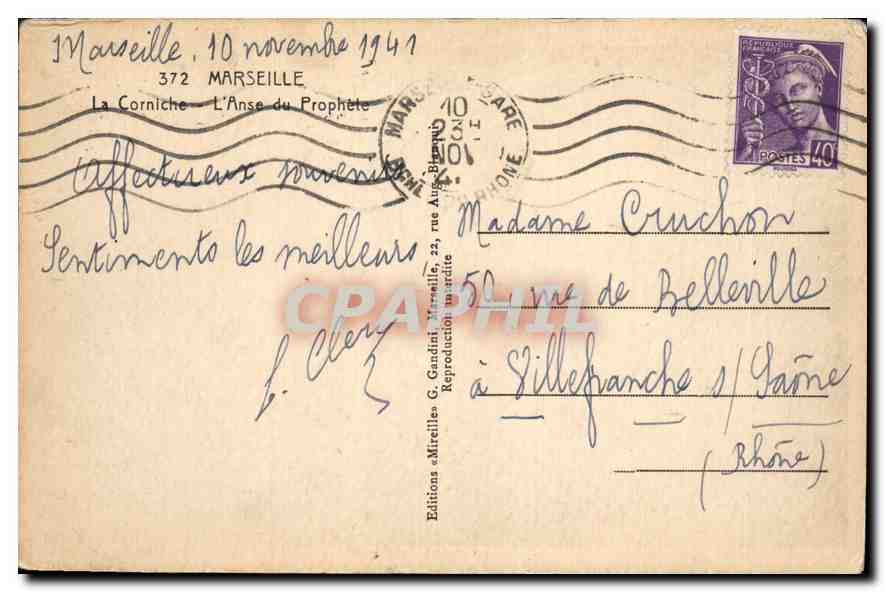 Marseille, 10 novembre 1941
372 MARSEILLE
La Corniche - L'Anse du Prophète
Affectueux souvenirs
Sentiments les meilleurs
RÉPUBLIQUE
FRANÇAISE
POSTES 40
MARSEILLE GARE
10
RHONE
Madame Cruchon
50, rue de Belleville
à Villefranche s/ Saône
(Rhône)
Editions «Mireille» G. Gandini, Marseille, 22, rue Aug. Blanqui
Reproduction interdite
CPAPHIL